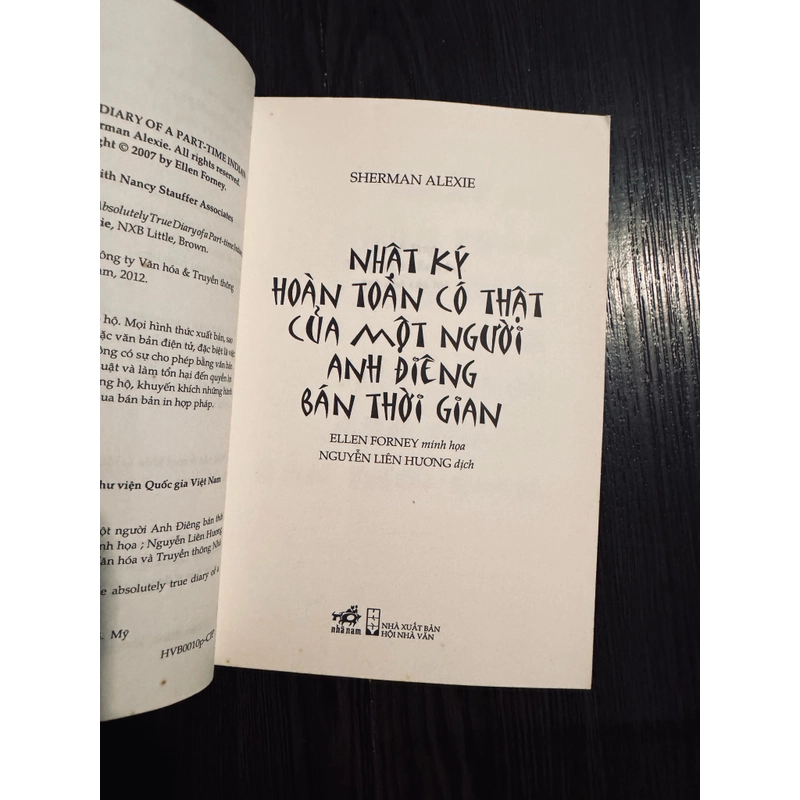 DIARY OF A PART-TIME INDIAN
rman Alexie. All rights reserved.
ght © 2007 by Ellen Forney.
ith Nancy Stauffer Associates
Absolutely True Diary of a Part-time Indian
xie, NXB Little, Brown.
ông ty Văn hóa & Truyền thông
am, 2012.
hộ. Mọi hình thức xuất bản, sao
ặc văn bản điện tử, đặc biệt là việc
ông có sự cho phép bằng văn bản
uật và làm tổn hại đến quyền lợi
ng hộ, khuyến khích những hành
ua bán bản in hợp pháp.
hư viện Quốc gia Việt Nam
ột người Anh Điêng bán thời
nh họa ; Nguyễn Liên Hương
Văn hóa và Truyền thông Nhã
e absolutely true diary of a
. Mỹ
HVB0010p-CIP
SHERMAN ALEXIE
NHẬT KÝ
HOÀN TOÀN CÓ THẬT
CỦA MỘT NGƯỜI
ANH ĐIÊNG
BÁN THỜI GIAN
ELLEN FORNEY minh họa
NGUYỄN LIÊN HƯƠNG dịch
nhã nam
NHÀ XUẤT BẢN
HỘI NHÀ VĂN